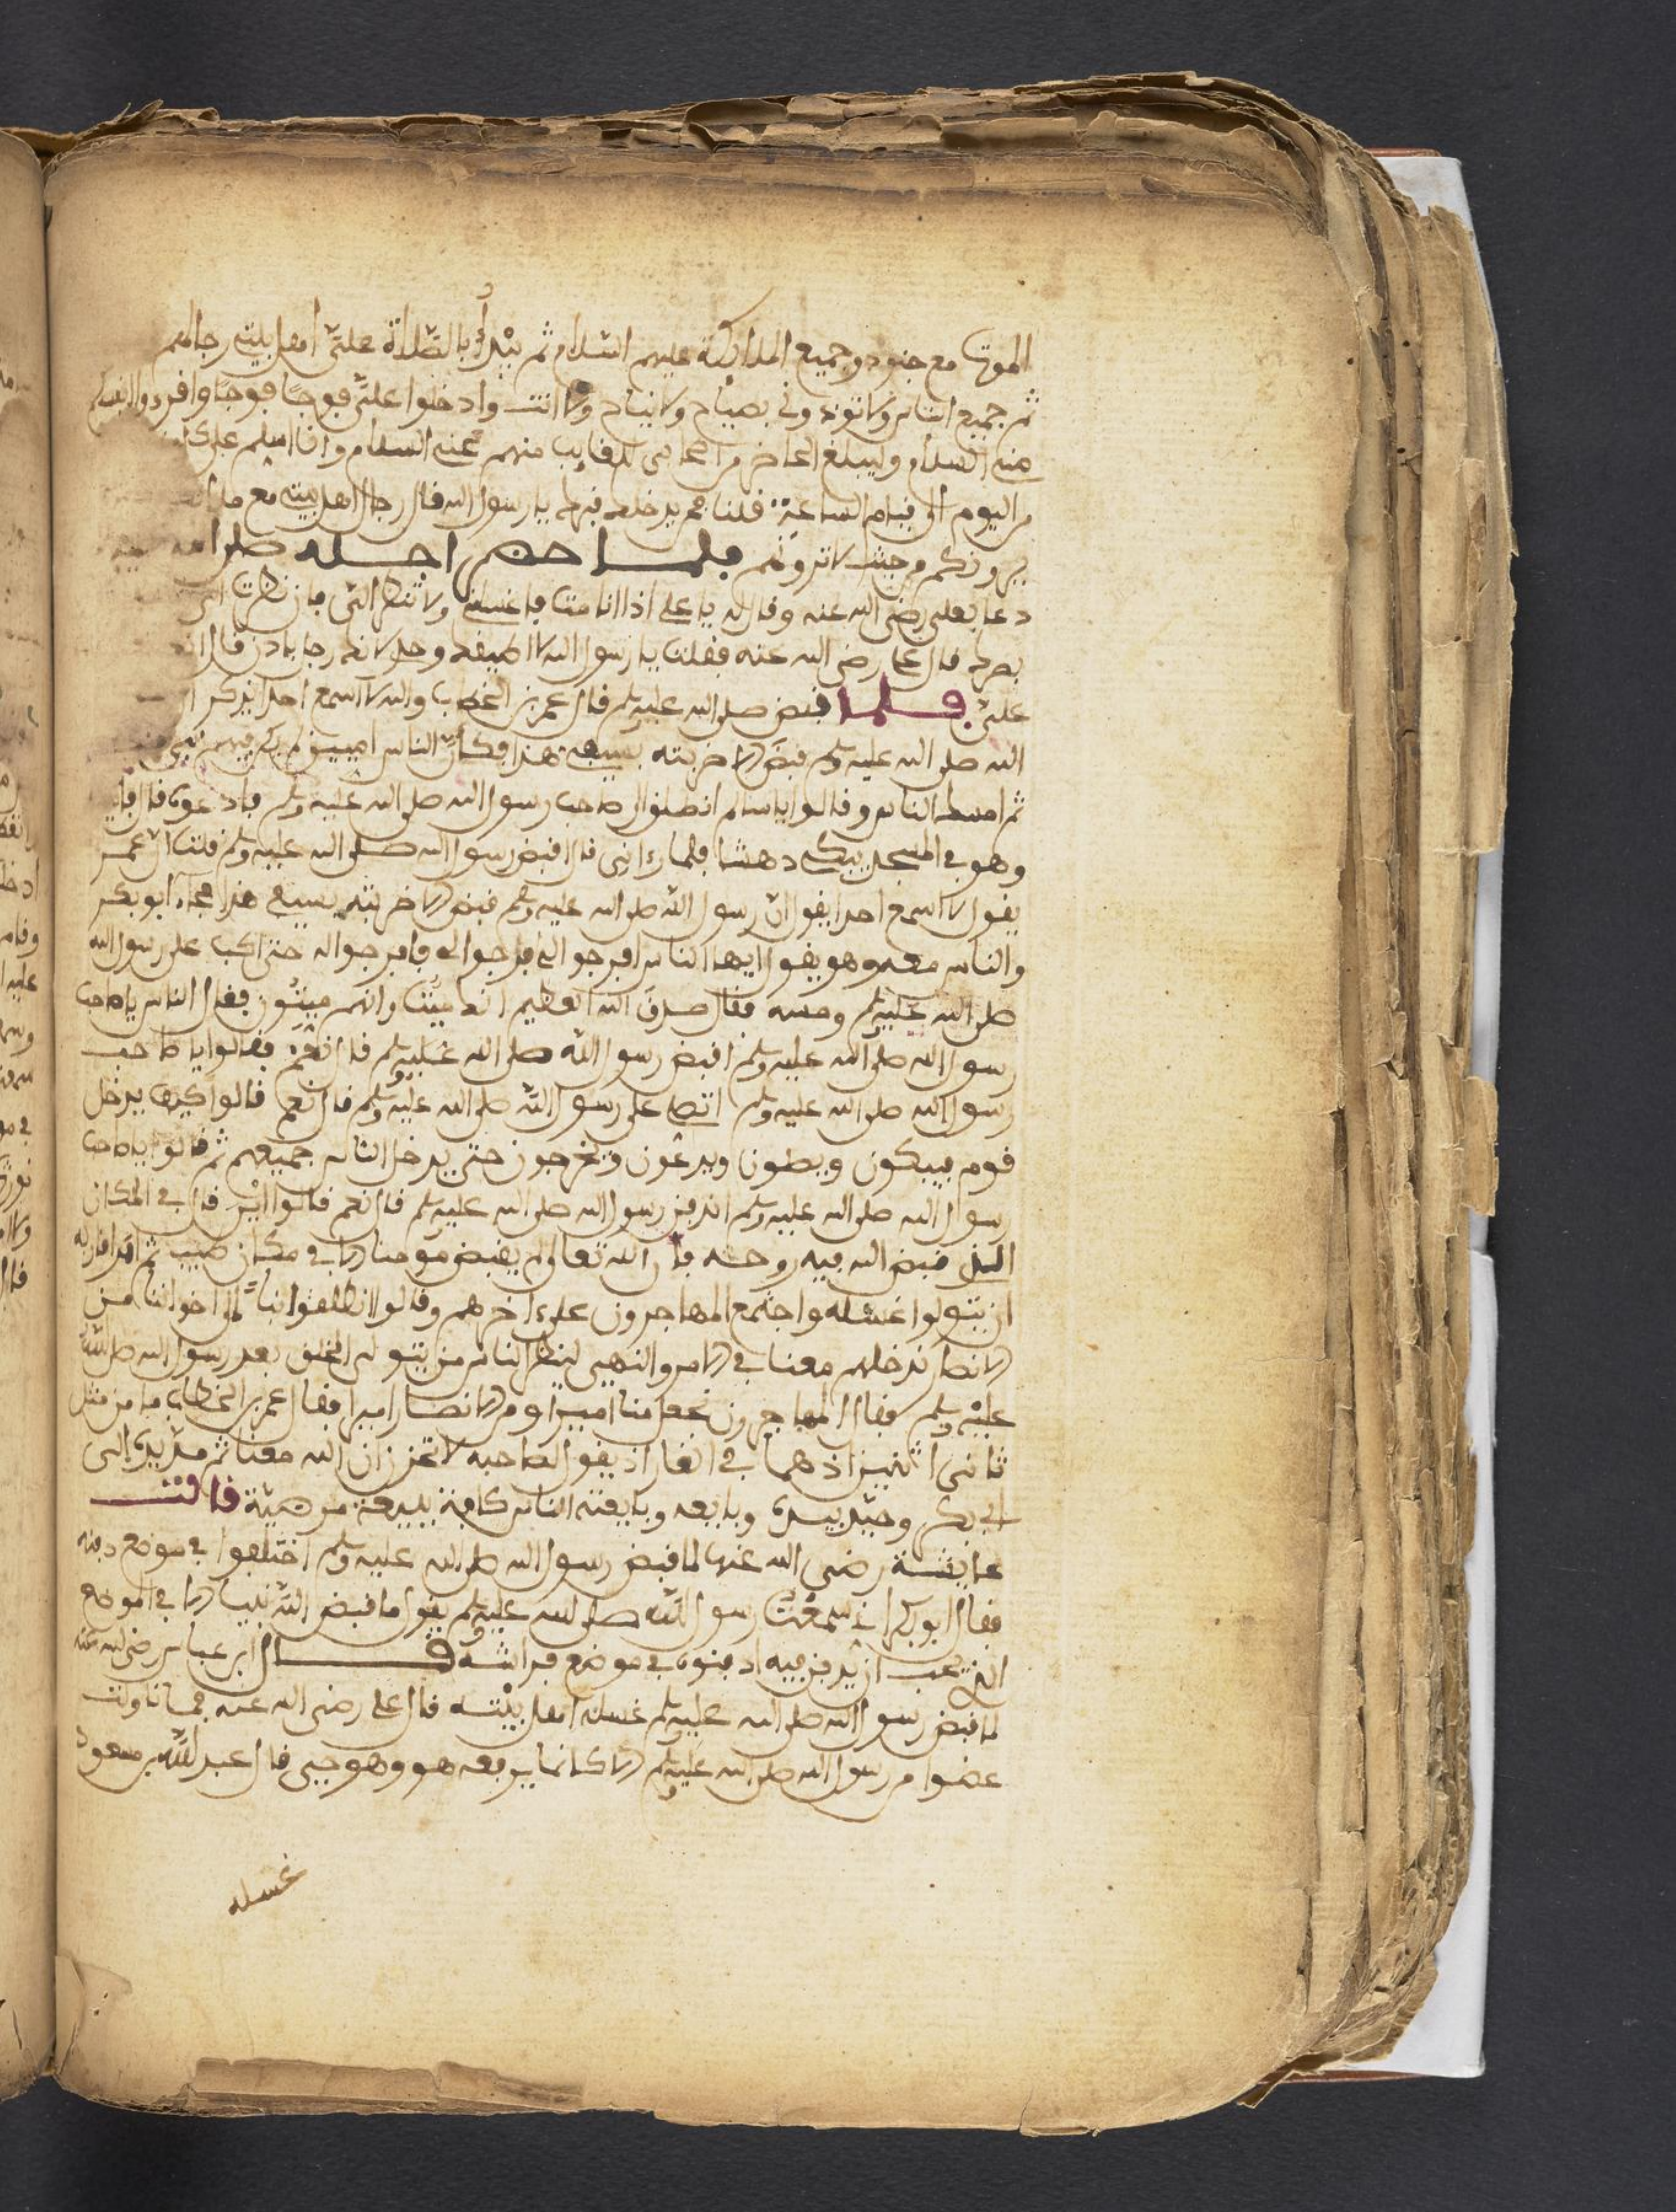 الموت مع جنوده وجميع الملائكة عليهم السلام ثم يبدأ بالصلاة عليّ أهل بيتي رجالهم
ثم جميع الناس ولا تؤذوني بصياح ولا نياح ولا أنت وادخلوا علي فوجا فوجا وافردوا أنفسكم
مني السلام وليبلغ الحاضر من أصحابي الغايب منهم عني السلام وأنا أسلم عليكم
من اليوم إلى قيام الساعة قلنا فمن يدخلك قبرك يا رسول الله قال رجال أهل بيتي مع ملائكة
يرونكم من حيث لا ترونهم فلما حضر أجله صلى الله
دعا بعلي رضي الله عنه وقال له يا علي إذا أنا مت فاغسلني ولا تنظر إلي فإن نظرت إلي
بصرك قال علي رضي الله عنه فقلت يا رسول الله لا أطيقك وحدي لانك رجل بادن قال
علي فلما قبض صلى الله عليه وسلم قال عمر بن الخطاب والله لا أسمع أحدا يذكر أن
الله صلى الله عليه وسلم قبض إلا ضربته بسيفي هذا فكان الناس أميين لم يكن فيهم نبي
ثم أمسك الناس وقالوا يا سالم انطلق إلى صاحب رسول الله صلى الله عليه وسلم فادعوه قال فأتيت
وهو في المسجد يبكي دهشا فلما رءاني قال أقبض رسول الله صلى الله عليه وسلم قلت إن عمر
يقول لا أسمع أحدا يقول إن رسول الله صلى الله عليه وسلم قبض إلا ضربته بسيفي هذا فجاء أبو بكر
والناس معه وهو يقول أيها الناس افرجوا لي افرجوا لي فافرجوا له حتى أكب على رسول الله
صلى الله عليه وسلم ومسه فقال صدق الله العظيم إنك ميت وإنهم ميتون فقال الناس يا صاحب
رسول الله صلى الله عليه وسلم أقبض رسول الله صلى الله عليه وسلم قال نعم فقالوا يا صاحب
رسول الله صلى الله عليه وسلم اتصلي على رسول الله صلى الله عليه وسلم قال نعم قالوا كيف يدخل
قوم فيبكون ويصلون ويدعون ويخرجون حتى يدخل الناس جميعهم ثم قالوا يا صاحب
رسول الله صلى الله عليه وسلم اندفن رسول الله صلى الله عليه وسلم قال نعم قالوا أين قال في المكان
الذي قبض الله فيه روحه فإن الله تعالى لم يقبض مؤمنا إلا في مكان طيب ثم أمر أقاربه
أن يتولوا غسله واجتمع المهاجرون على ءاخرهم وقالوا انطلقوا بنا إلى إخواننا من
الانصار ندخلهم معنا في الامر والنهي لينظر الناس من يتولى الخلق بعد رسول الله صلى الله
عليه وسلم فقال المهاجرون نجعل منا أميرا ومن الانصار أميرا فقال عمر بن الخطاب ما من مثل
ثاني اثنين إذ هما في الغار إذ يقول لصاحبه لا تحزن إن الله معنا ثم مد يده إلى
أبي بكر وجيد بيده وبايعه وبايعته الناس كافة بيعة مرضية قالت
عايشة رضي الله عنها لما قبض رسول الله صلى الله عليه وسلم اختلفوا في موضع دفنه
فقال أبو بكر إني سمعت رسول الله صلى الله عليه وسلم يقول ما قبض الله نبيا إلا في الموضع
الذي يحب أن يدفن فيه ادفنوه في موضع فراشه قال ابن عباس رضي الله عنه
لما قبض رسول الله صلى الله عليه وسلم غسله أهل بيته قال علي رضي الله عنه فما تناولت
عضوا من رسول الله صلى الله عليه وسلم إلا كأنما يرفعه هو وهو حيي قال عبد الله بن مسعود
غسله